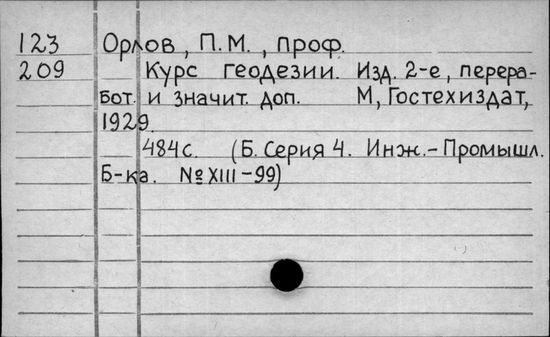 123 Орлов, П.М., проф.
209 Курс геодезии. Изд. 2-е, перера-
бот. и значит. доп. М, Гостехиздат,
1929.
484с. (Б. Серия 4. Инж.-Промышл.
Б-ка. №XIII-99)